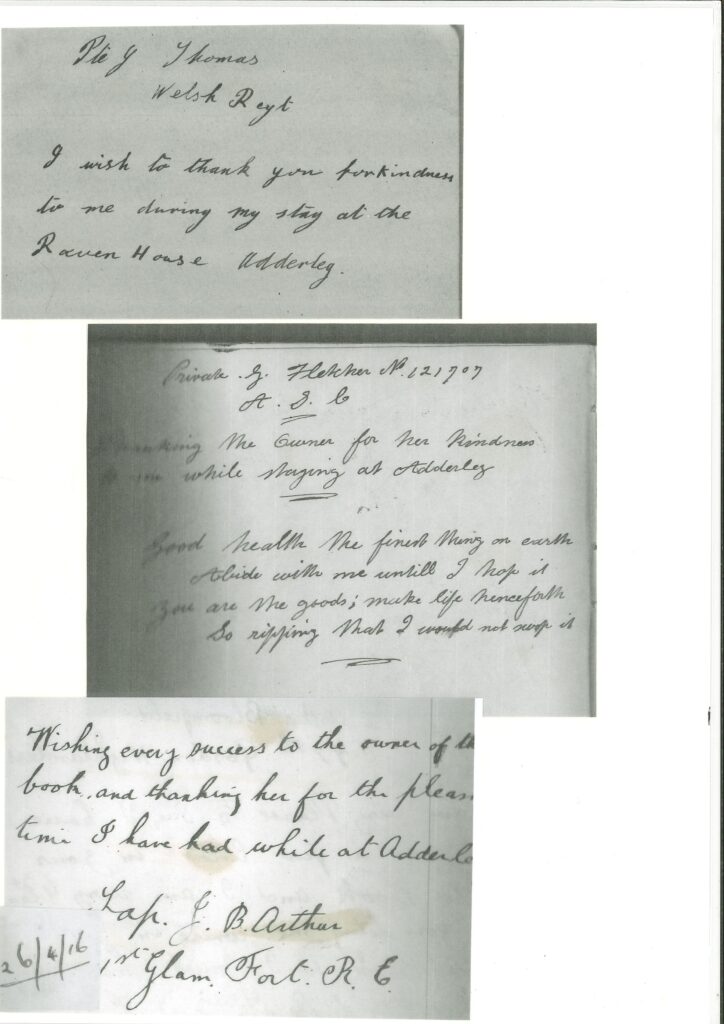 Pte J Thomas
Welsh Regt
I wish to thank you for kindness
to me during my stay at the
Raven House Adderley.
Private G. Fletcher No. 121707
A. S. C
Thanking the Owner for her kindness
to me while staying at Adderley
Good health the finest thing on earth
Abide with me untill I hop it
You are the goods; make life henceforth
So ripping that I would not swop it
Wishing every success to the owner of th
book, and thanking her for the pleas
time I have had while at Adderle
Sap. J. B. Arthur
1st Glam. Fort. R. E.
26/4/16